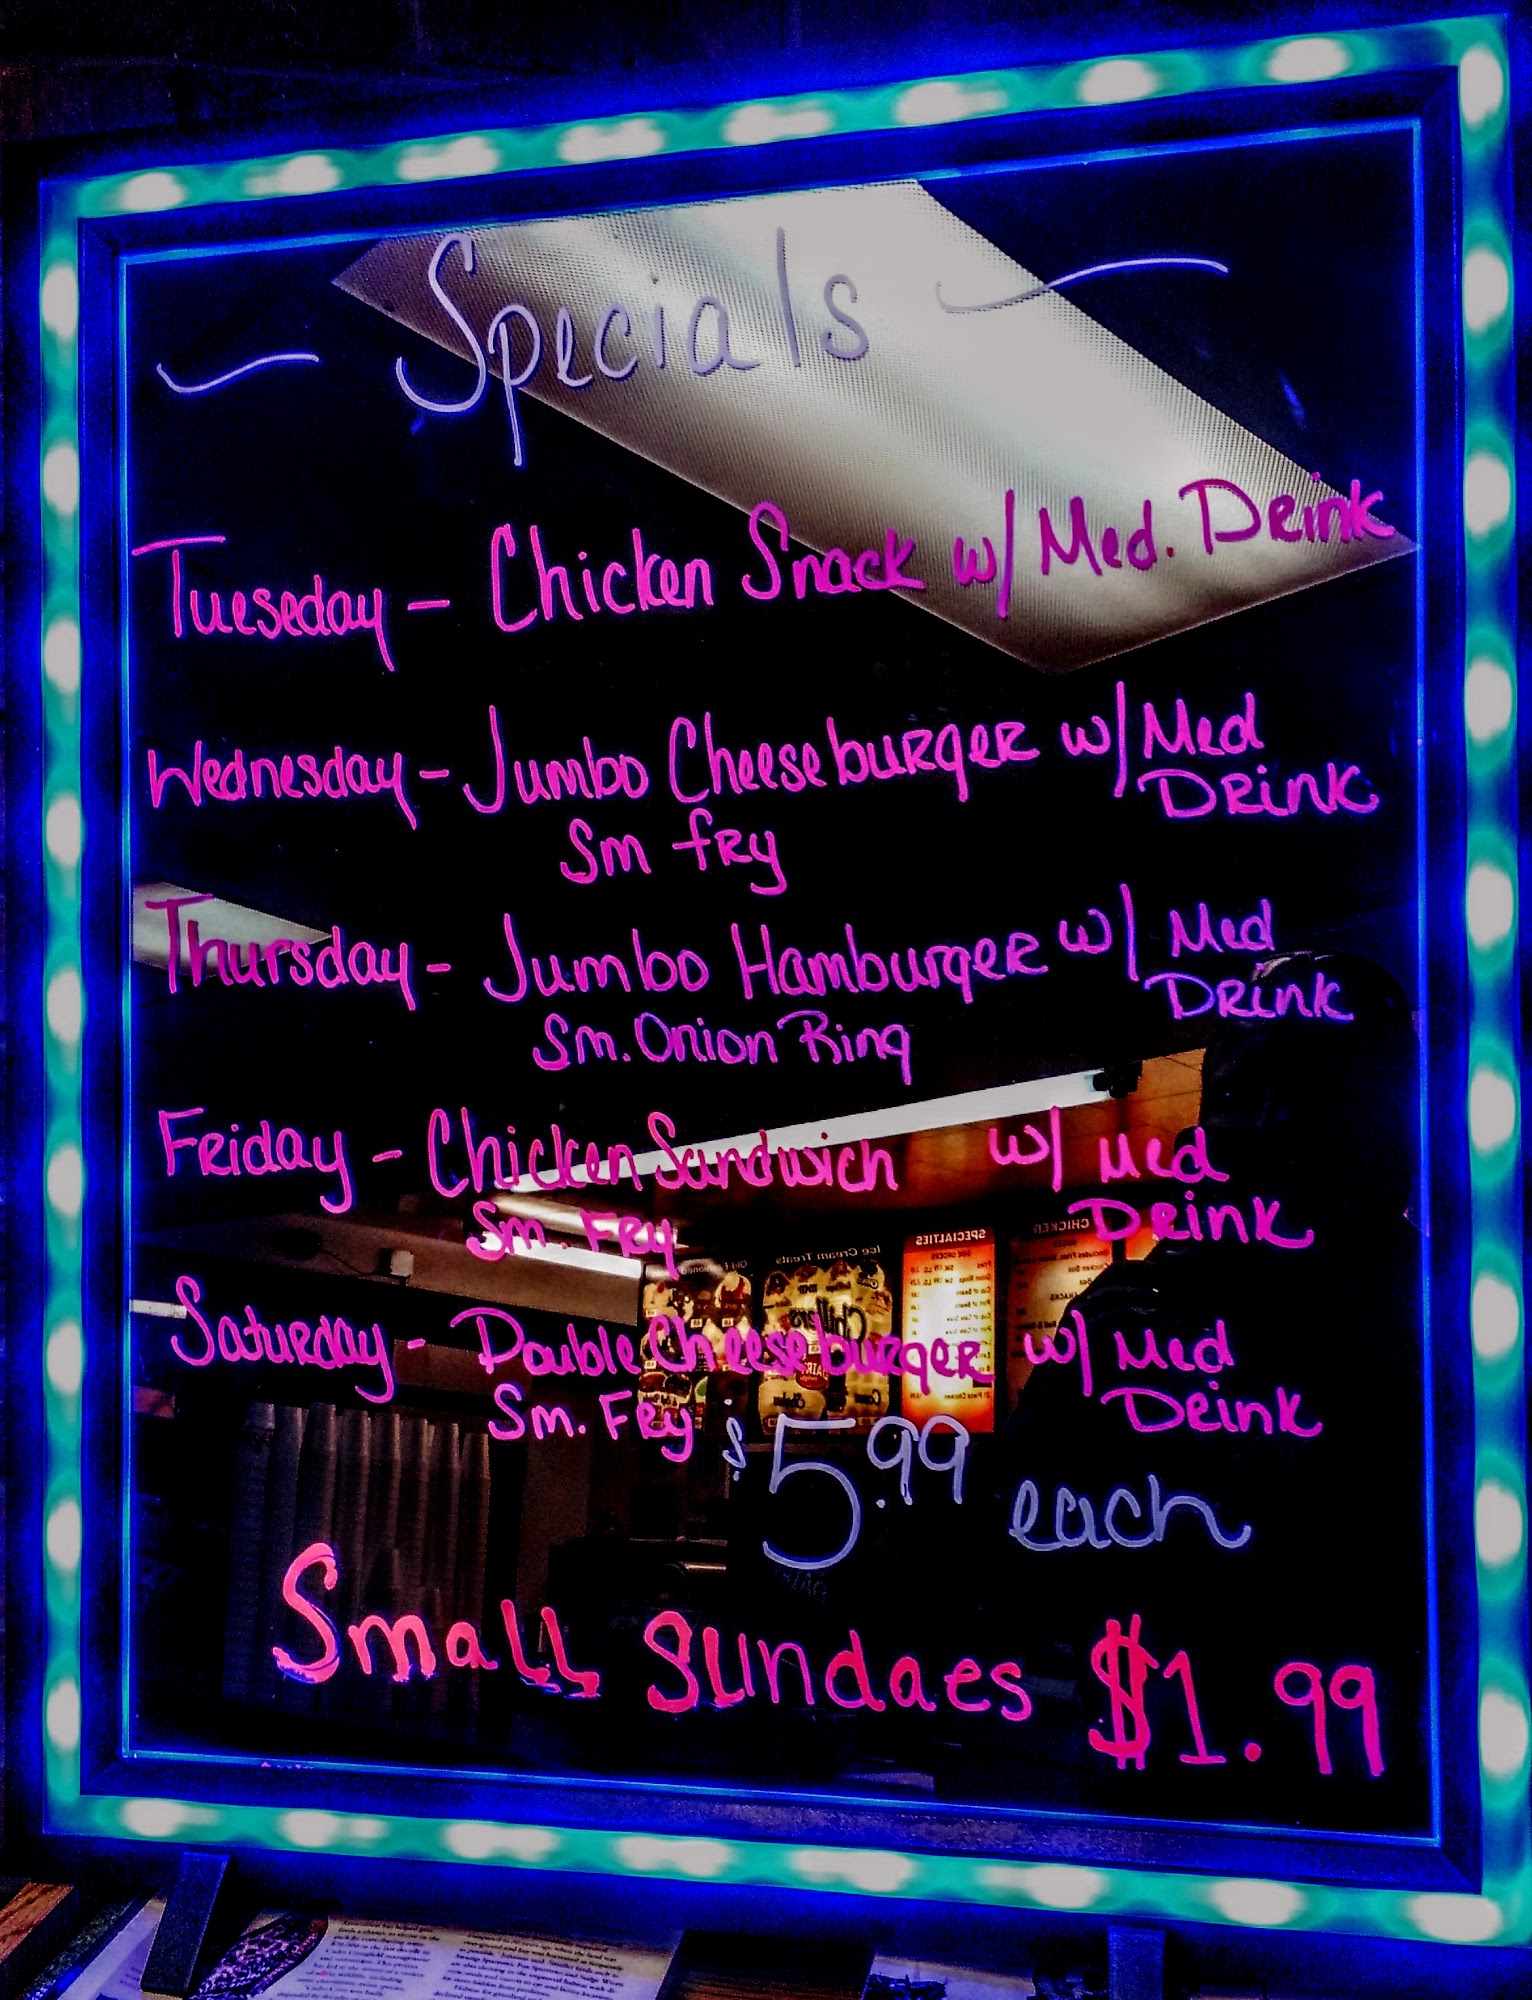 Specials
Tueseday - Chicken Snack w/ Med. Drink
Wednesday - Jumbo Cheeseburger w/ Med
Drink
Sm fry
Thursday - Jumbo Hamburger w/ Med
Drink
Sm. Onion Ring
Friday - Chicken Sandwich w/ Med
Drink
Sm. Fry
Saturday - Double Cheeseburger w/ Med
Drink
Sm. Fry
$5.99 each
Small Sundaes $1.99
Ice Cream Treats
SPECIALTIES
CHICKEN